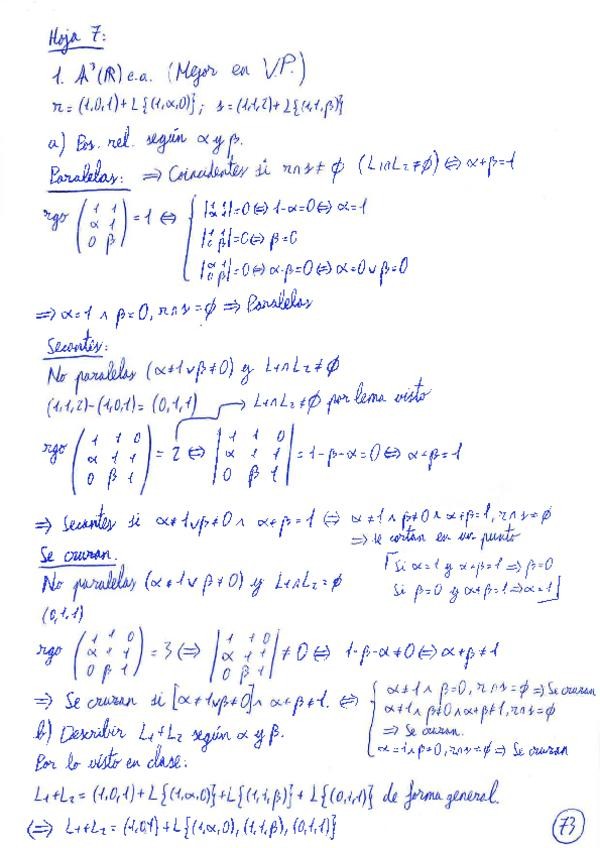 Hoja 7:
1. A³(ℝ) e.a. (Mejor en V.P.)
r = (1,0,1) + L{(1,α,0)}; s = (1,1,2) + L{(1,1,β)}
a) Pos. rel. según α y β.
Paralelas: ⇒ Coincidentes si r∩s ≠ ∅ (L₁∩L₂ ≠ ∅) ⇔ α+β=1
rgo (1 1 / α 1 / 0 β) = 1 ⇔ { |1 1 / α 1| = 0 ⇔ 1-α=0 ⇔ α=1
|1 1 / 0 β| = 0 ⇔ β=0
|α 1 / 0 β| = 0 ⇔ α·β=0 ⇔ α=0 ∨ β=0
⇒ α=1 ∧ β=0, r∩s = ∅ ⇒ Paralelas
Secantes:
No paralelas (α≠1 ∨ β≠0) y L₁∩L₂ ≠ ∅
(1,1,2)-(1,0,1) = (0,1,1) → L₁∩L₂ ≠ ∅ por lema visto
rgo (1 1 0 / α 1 1 / 0 β 1) = 2 ⇔ |1 1 0 / α 1 1 / 0 β 1| = 1-β-α=0 ⇔ α+β=1
⇒ Secantes si α≠1 ∨ β≠0 ∧ α+β=1 ⇔ α≠1 ∧ β≠0 ∧ α+β=1, r∩s=∅
⇒ se cortan en un punto
Se cruzan.
⌈Si α=1 y α+β=1 ⇒ β=0
No paralelas (α≠1 ∨ β≠0) y L₁∩L₂ = ∅
Si β=0 y α+β=1 ⇒ α=1⌋
(0,1,1)
rgo (1 1 0 / α 1 1 / 0 β 1) = 3 ⇔ |1 1 0 / α 1 1 / 0 β 1| ≠ 0 ⇔ 1-β-α≠0 ⇔ α+β≠1
⇒ Se cruzan si [α≠1 ∨ β≠0] ∧ α+β≠1. ⇔ { α≠1 ∧ β=0, r∩s=∅ ⇒ Se cruzan
α≠1 ∧ β≠0 ∧ α+β≠1, r∩s=∅
⇒ Se cruzan.
α=1 ∧ β≠0, r∩s=∅ ⇒ Se cruzan
b) Describir L₁+L₂ según α y β.
Por lo visto en clase:
L₁+L₂ = (1,0,1) + L{(1,α,0)} + L{(1,1,β)} + L{(0,1,1)} de forma general.
⇔ L₁+L₂ = (1,0,1) + L{(1,α,0), (1,1,β), (0,1,1)}
73